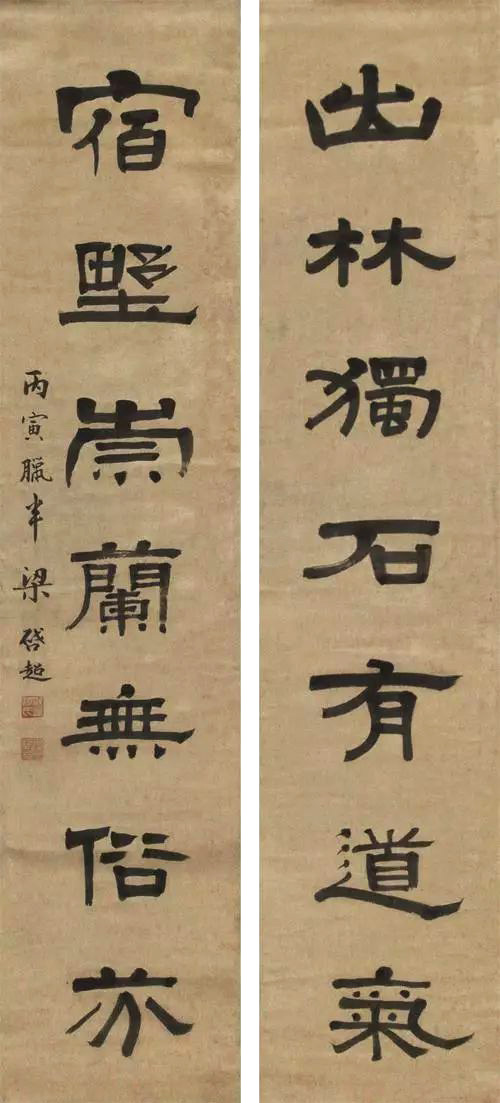 出林獨石有道氣
宿墅崇蘭無俗亦
丙寅臘半梁啓超